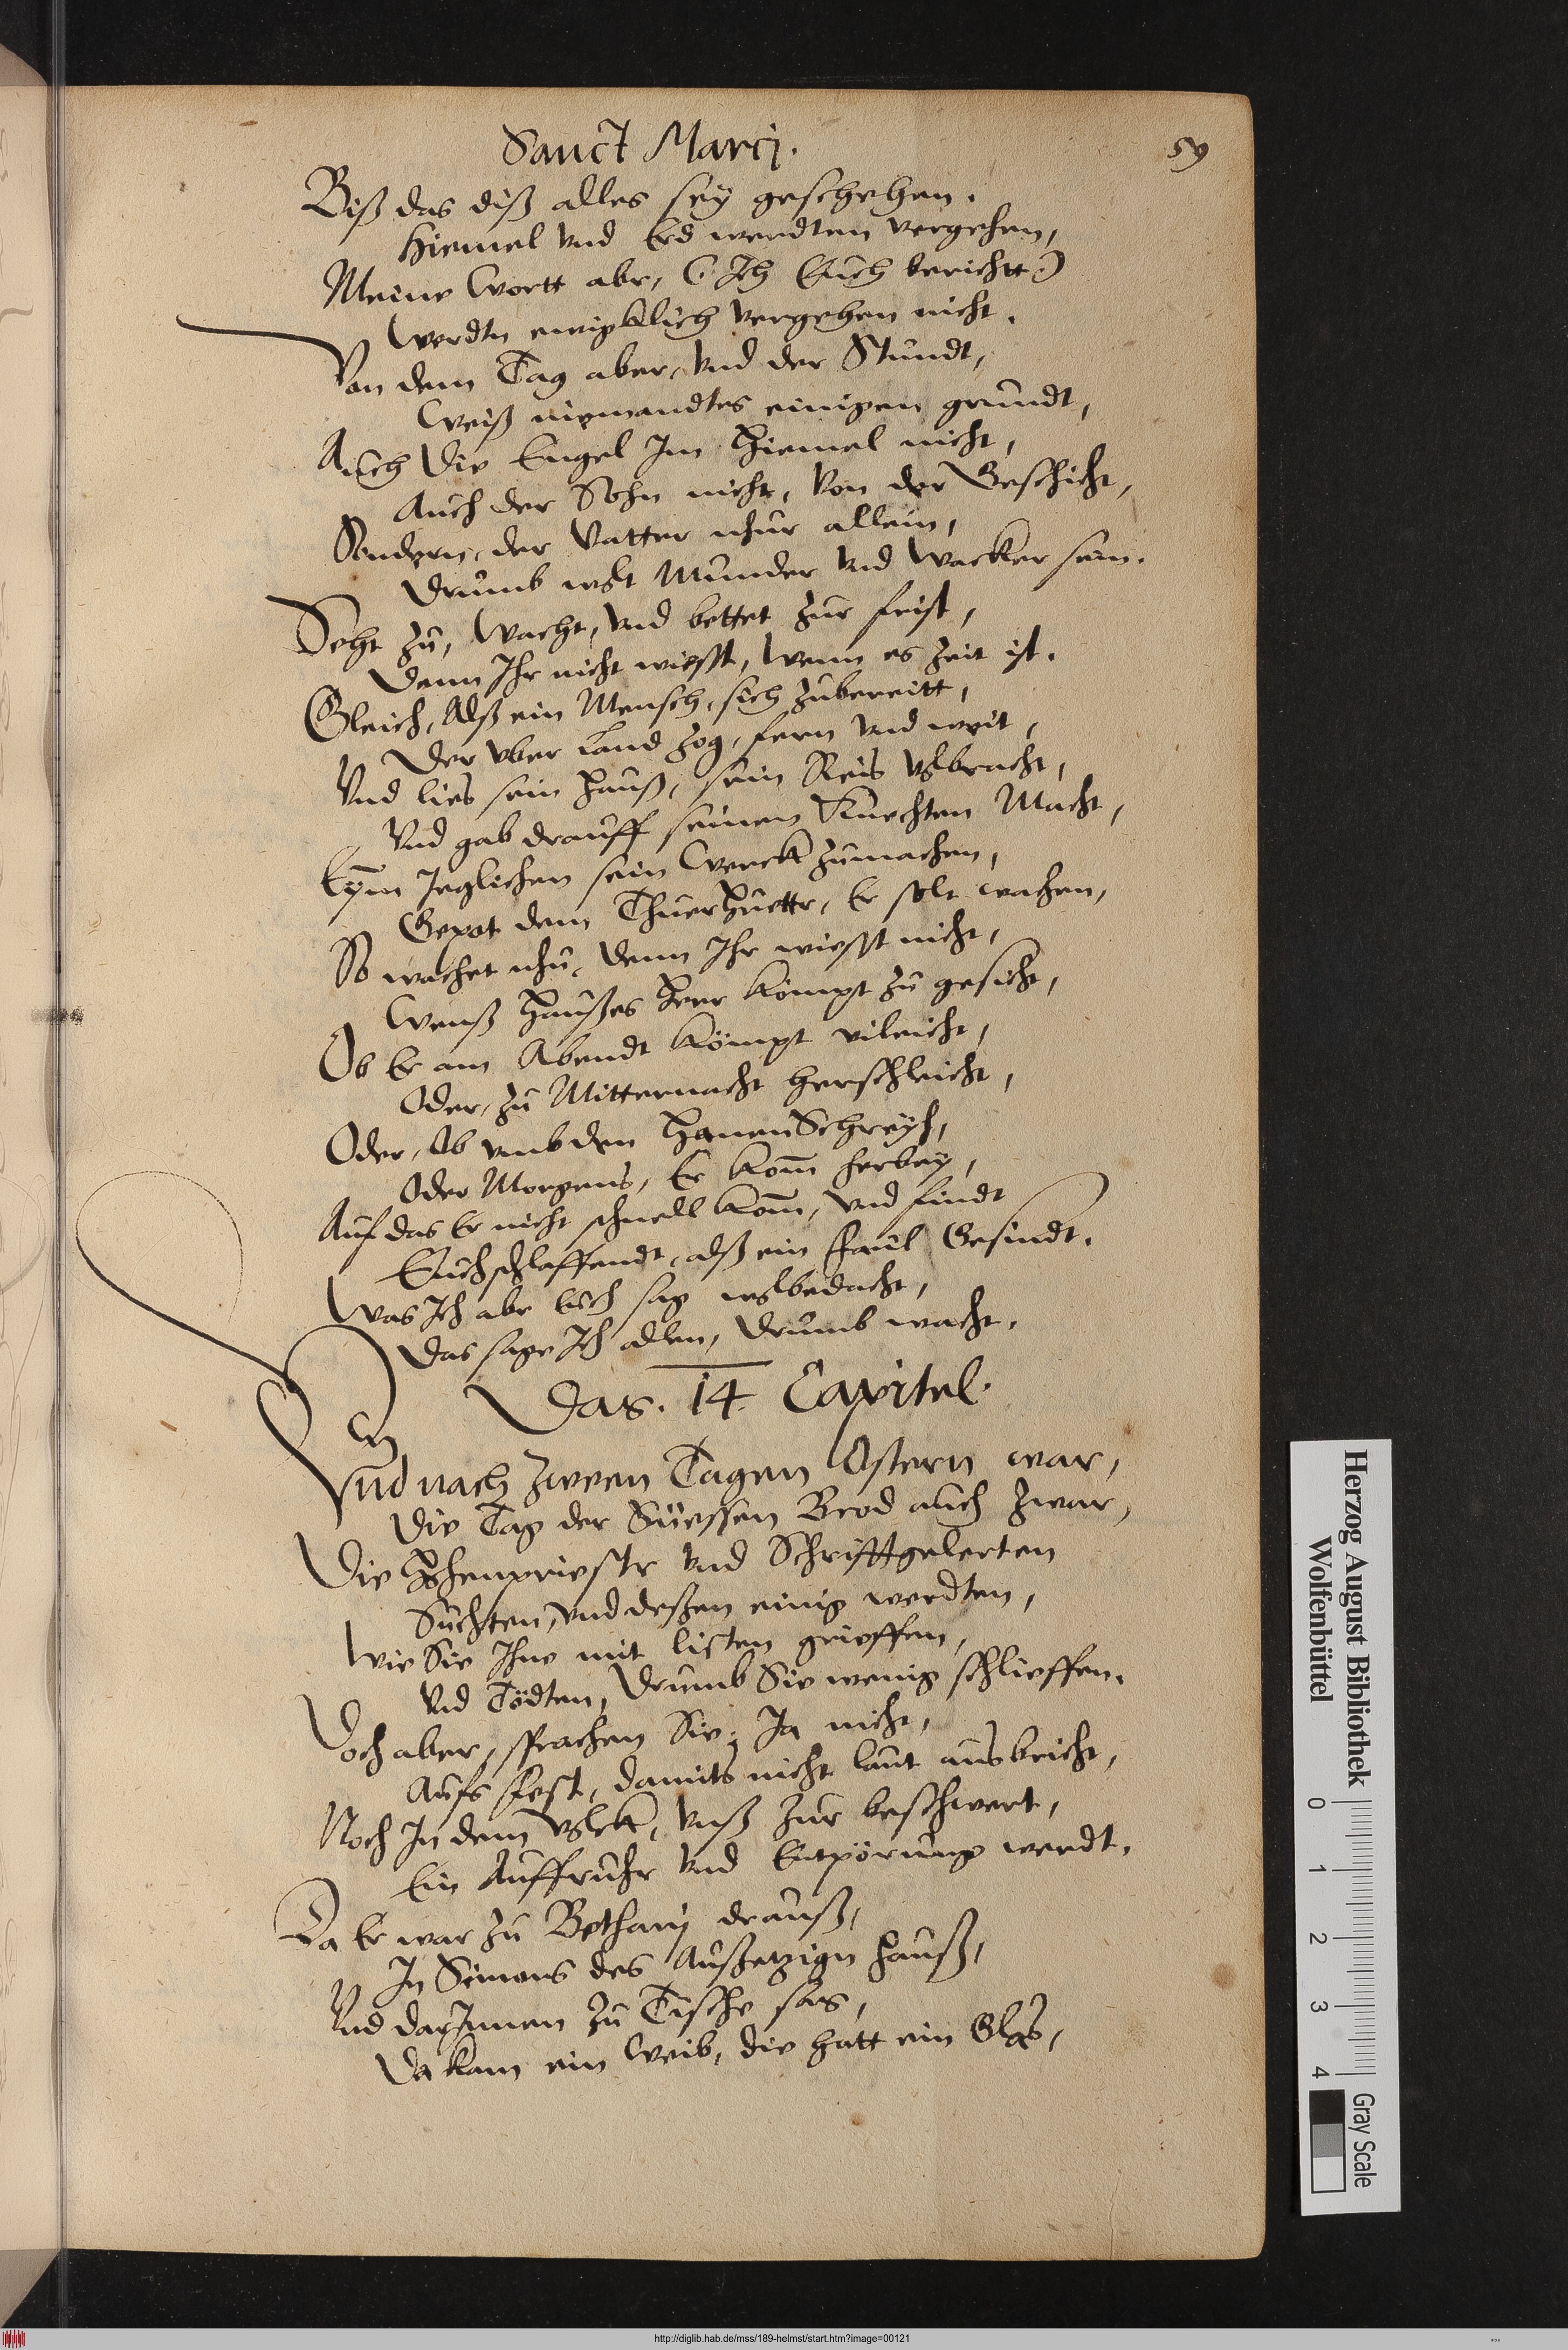 Sanct Marcj.
59
Biß das diß alles seÿ geschehen.
Hiemel vnd Erd werdten vergehen,
Meine Wortt abr, (Ich Euch bericht)
Werdtn ewigklich vergehen nicht.
Von dem Tag aber, vnd der Stundt,
Weiß niemandtes einigen grundt,
Auch die Engel Im Hiemel nicht,
Auch der Sohn nicht, von der Geschicht,
Sondern, der Vatter nhur allein,
Drumb wolt Munder vnd Wacker sein.
Seht zu, Wacht, vnd bettet zur frist,
Denn Ihr nicht wiesst, Wenn es zeit ist.
Gleich, Alß ein Mensch, sich zubereitt,
Der vber Land zog, fern vnd weit,
Vnd lies sein Hauß, sein Reis volbracht,
Vnd gab drauff seinen Knechten Macht,
Eÿm Jeglichen sein Werck zumachen,
Gepot dem Thuerhuettr, Er solt wachen,
So wachet nhu, denn Ihr wiesst nicht,
Wenß Haußes Herr kömpt zu gesicht,
Ob Er am Abendt kömpt vileicht,
Oder, zu Mitternacht herschleicht,
Oder, Ob vmb den HanenSchreÿh,
Oder Morgens, Er kom̄ herbeÿ,
Auf das Er nicht schnell kom̄, vnd findt
Euch schlaffendt, alß ein faul Gesindt.
Was Ich abr Euch sag wolbedacht,
Das sage Ich allen, Drumb wacht.
Das. 14. Capitel.
Vnd nach zween Tagen Ostern war,
Die Tag der Süessen Brod auch zwar,
Die Hohenpriestr vnd Schrifftgelerten
Suchten, vnd deßen einig werdten,
Wie Sie Ihne mit listen grieffen,
Vnd Tödten, Drumb Sie wenig schlieffen.
Doch aber, sprachen Sie; Ja nicht,
Aufs fest, damits nicht laut ausbricht,
Noch In dem Volck, vnß zur beschwert,
Ein Auffruhr vnd Entpörung werdt.
Da Er war zu Bethanj drauß,
In Simons des Außetzign Hauß,
Vnd darInnen zu Tische sas,
Da kam ein Weib, die hatt ein Glas,
Herzog August Bibliothek
Wolfenbüttel
0 1 2 3 4
Gray Scale
http://diglib.hab.de/mss/189-helmst/start.htm?image=00121